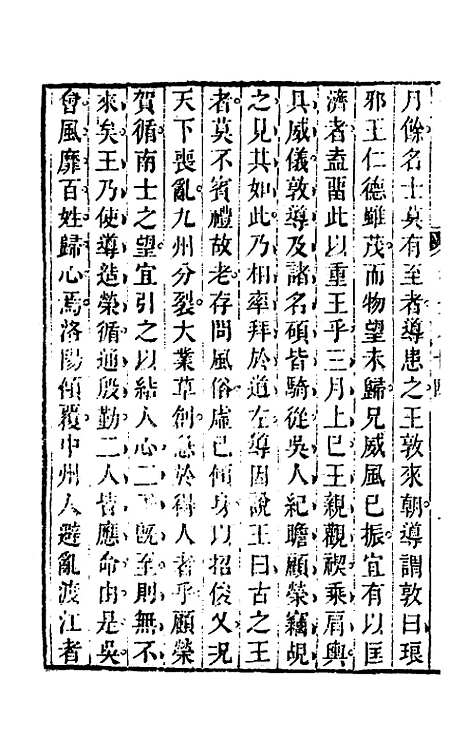 月餘名士莫有至者導患之王敦來朝導謂敦曰琅
邪王仁德雖茂而物望未歸兄威風已振宜有以匡
濟者盍畱此以重王乎三月上巳王親觀禊乘肩輿
具威儀敦導及諸名碩皆騎從吳人紀瞻顧榮竊覘
之見其如此乃相率拜於道左導因說王曰古之王
者莫不賓禮故老存問風俗虛己傾身以招俊乂況
天下喪亂九州分裂大業草創急於得人者乎顧榮
賀循南士之望宜引之以結人心二子既至則無不
來矣王乃使導造榮循通殷勤二人皆應命由是吳
會風靡百姓歸心焉洛陽傾覆中州人避亂渡江者